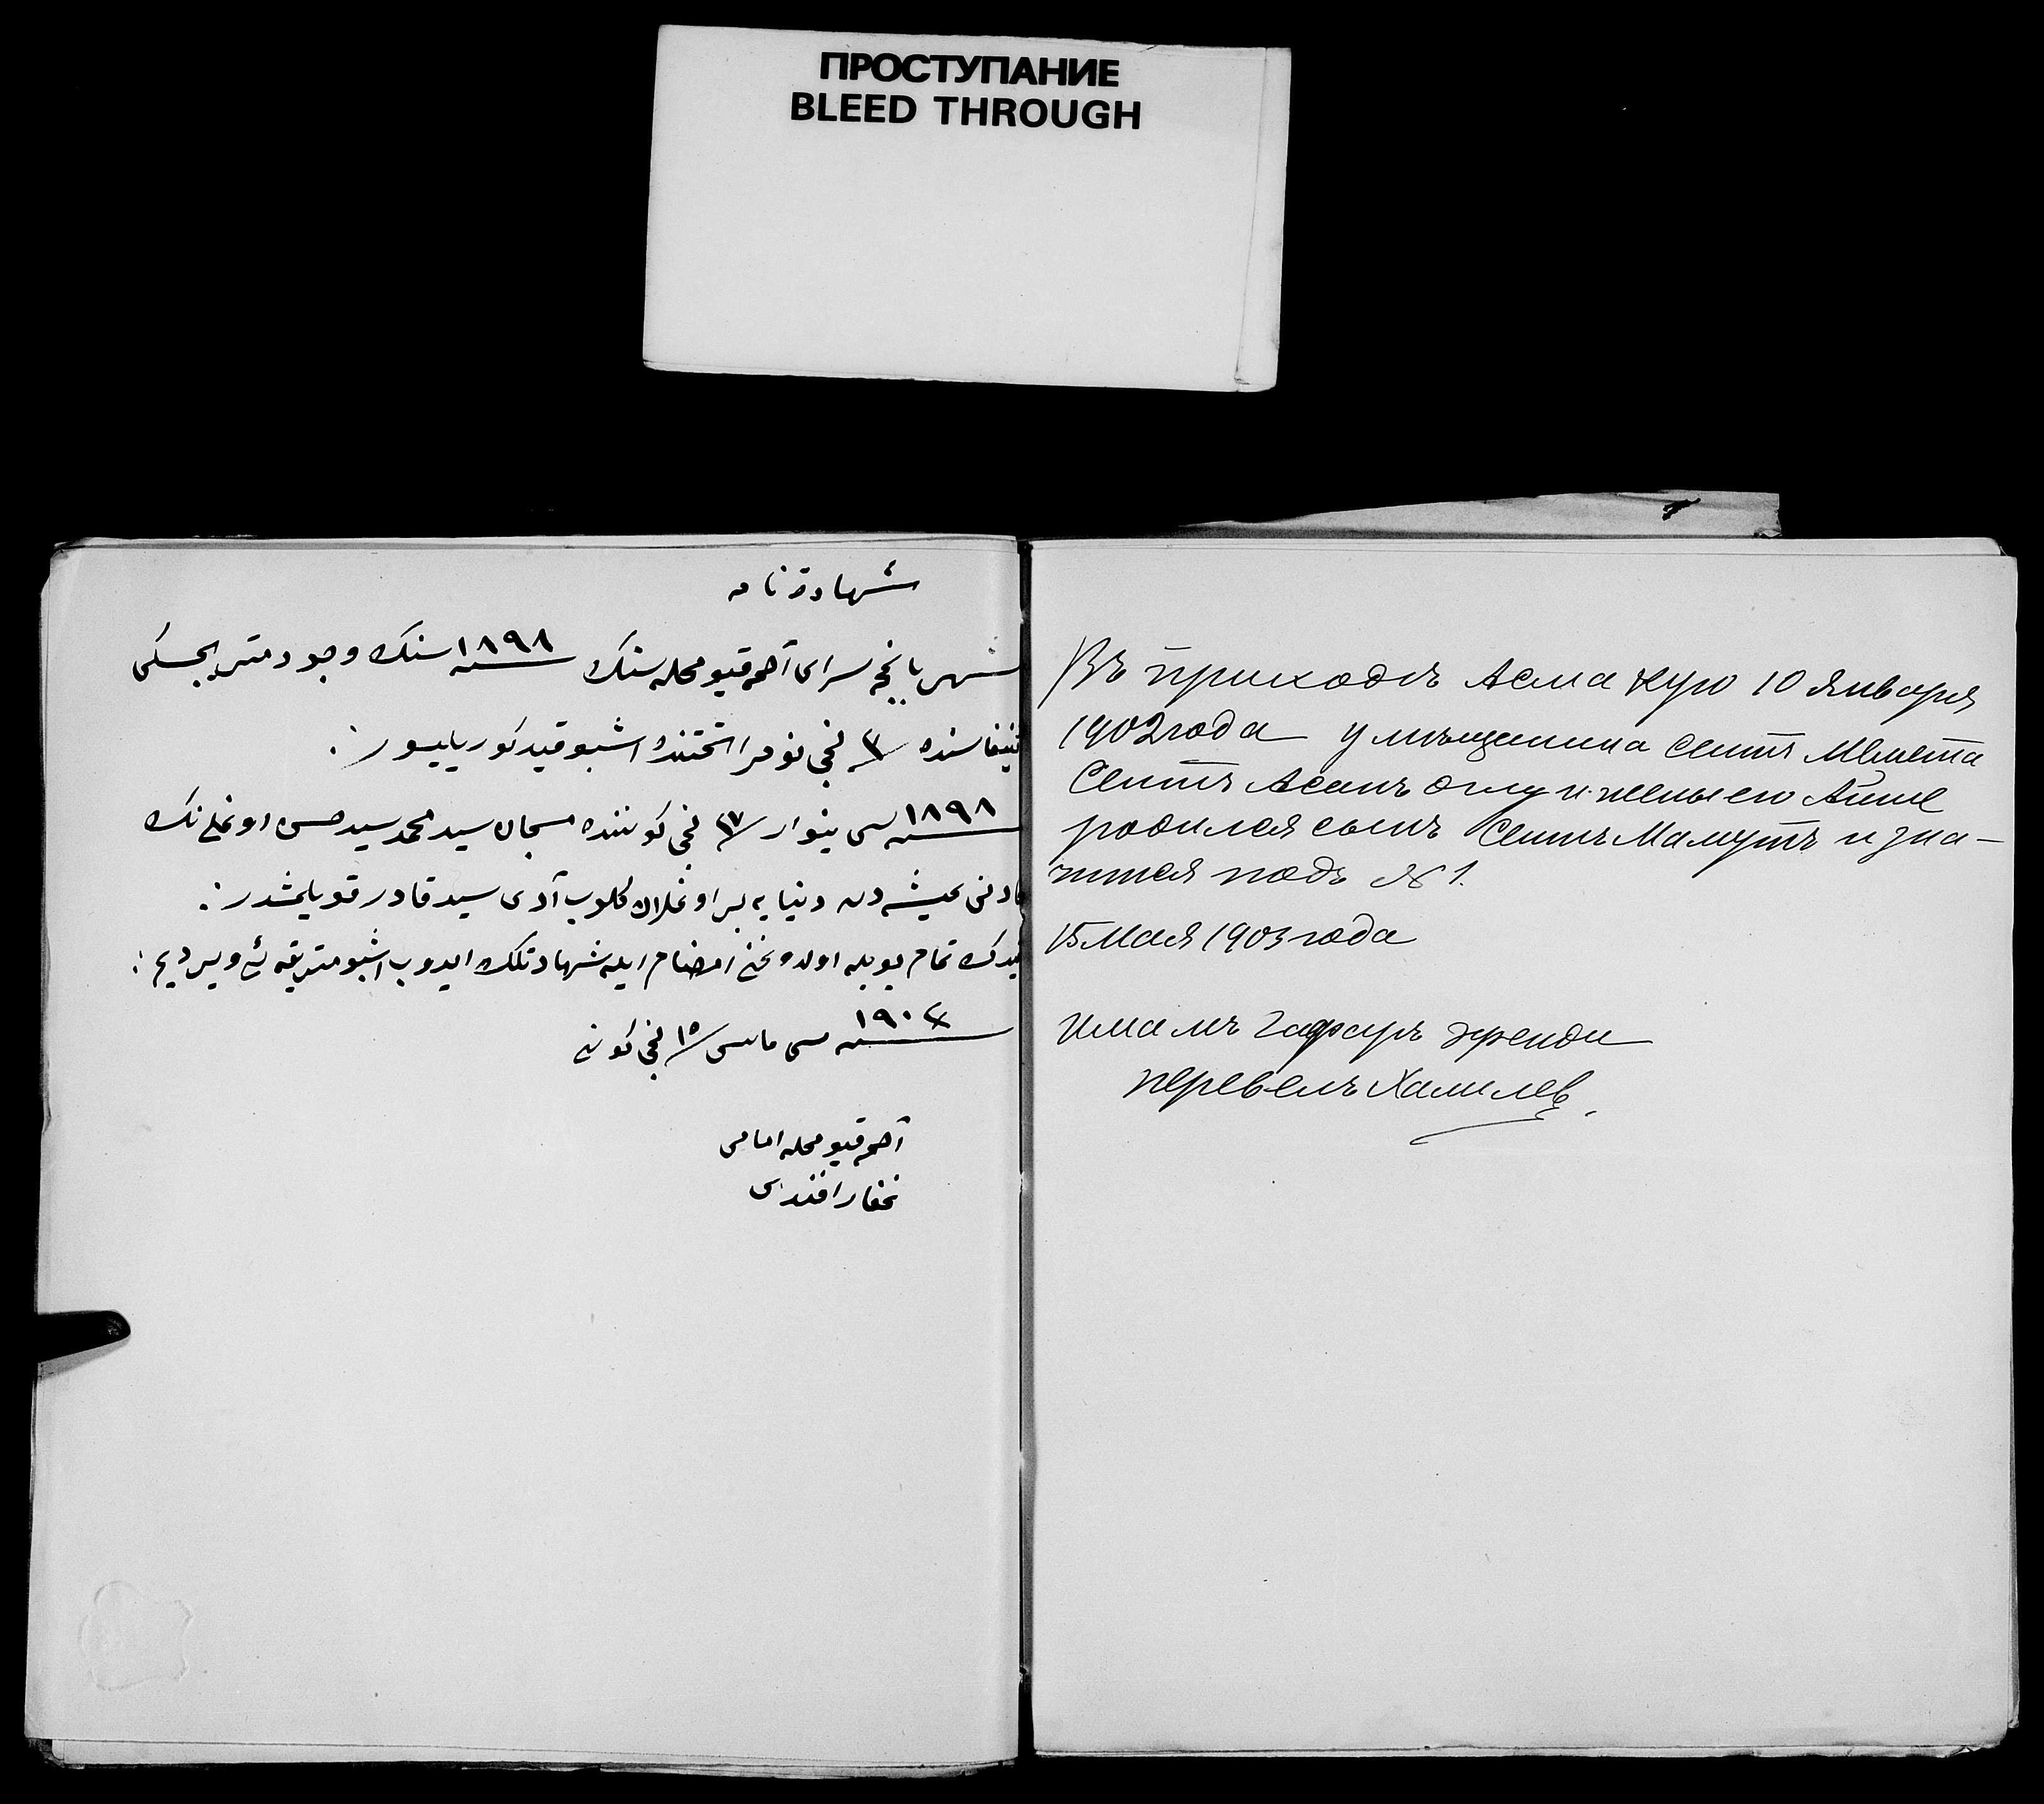 ПРОСТУПАНИЕ
BLEED THROUGH
شهادتنامه
شهر باغچه سرای آصمه قیو محله سنك ١٨٩٨ سنه سنك وجود متریچسكی
٣ نجی نومرا تحتنده اشبو قید كوریلیور
١٨٩٨ سنه سی ینوار ١٧ نجی كوننده مسچان سید محمد سید حسن اوغلی نك
عیشه دن دنیایه بر اوغلان كلوب آدی سید قادر قویلمشدر
تمام بویله اولدوغنی امضام ایله شهادتلك ایدوب اشبو متریقه نی ویردیم
١٩٠٣ سنه سی مایس ١٥ نجی كونی
آصمه قیو محله امامی
غفار افندی
Въ приходѣ Асма кую 10 января
1902 года у мѣщанина Сеитъ Мемета
Сеитъ Асанъ оглу и жены его Айше
родился сынъ Сеитъ Мамутъ и зна-
чится подъ № 1.
15 Мая 1903 года
Имамъ Гафаръ эфенди
перевелъ Халилев